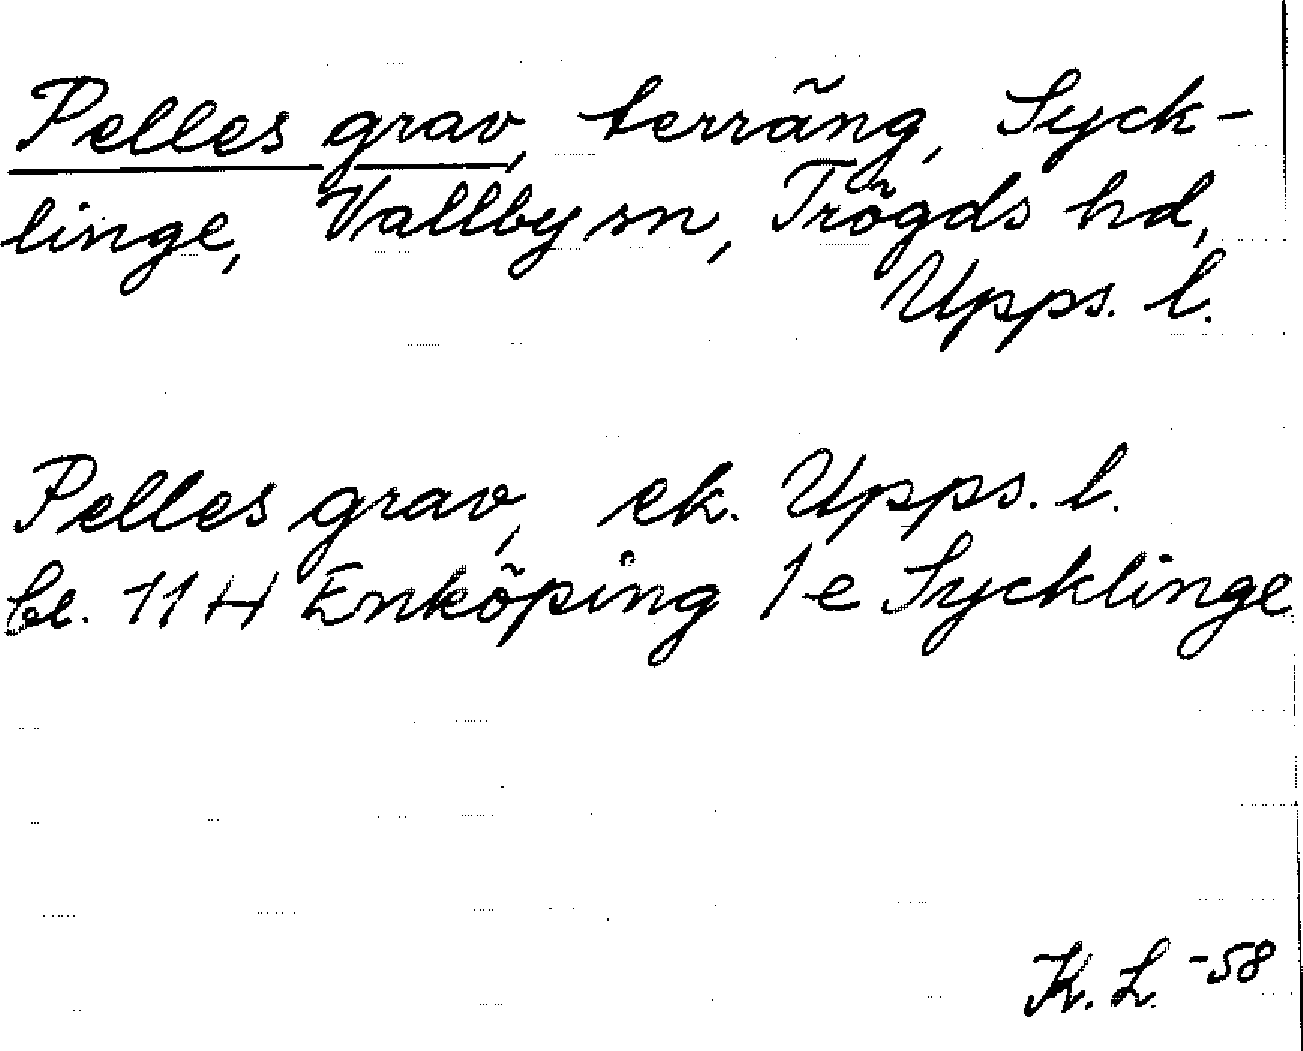 Pelles grav, terräng, Syck-
linge, Vallby sn, Trögds hd,
Upps. l.
Pelles grav, ek. Upps. l.
bl. 11 H Enköping 1 e Sycklinge
K. L. -58